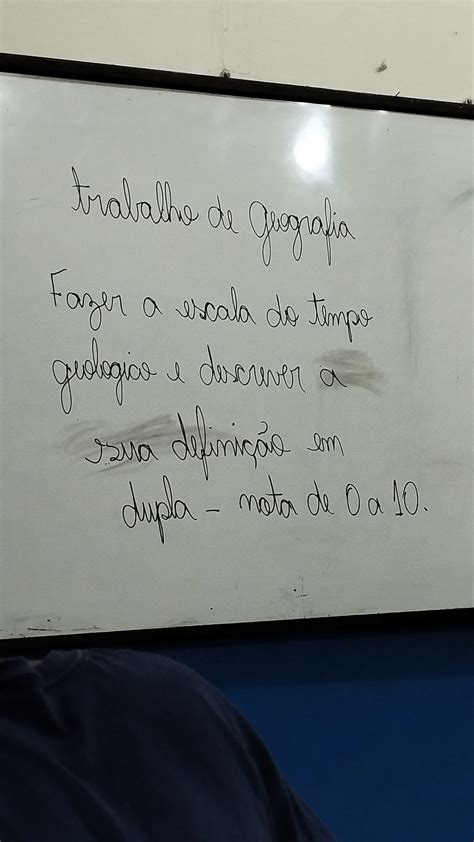 trabalho de Geografia
Fazer a escala do tempo
geologico e descrever a
sua definição em
dupla - nota de 0 a 10.